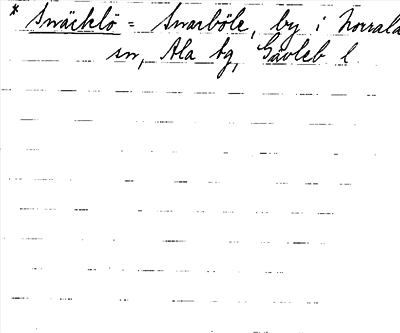 * Snäcklö = Snarböle, by i Norrala
sn, Ala tg, Gävleb l